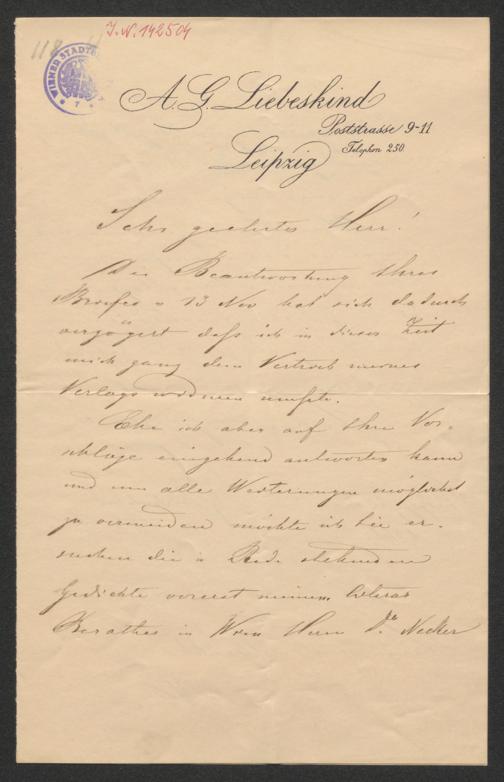 J.N. 142504
118
WIENER STADT
7
A. G. Liebeskind
Poststrasse 9-11
Telephon 250
Leipzig
Sehr geehrter Herr!
Die Beantwortung Ihres
Briefes v 13 Nov hat sich dadurch
verzögert daß ich in dieser Zeit
mich ganz dem Vertrieb meines
Verlags widmen mußte.
Ehe ich aber auf Ihre Vor-
schläge eingehend antworten kann
und um alle Weiterungen möglichst
zu vermeiden möchte ich Sie er-
suchen die in Rede stehenden
Gedichte vorerst meinem literar
Berather in Wien Herrn Dr Necker